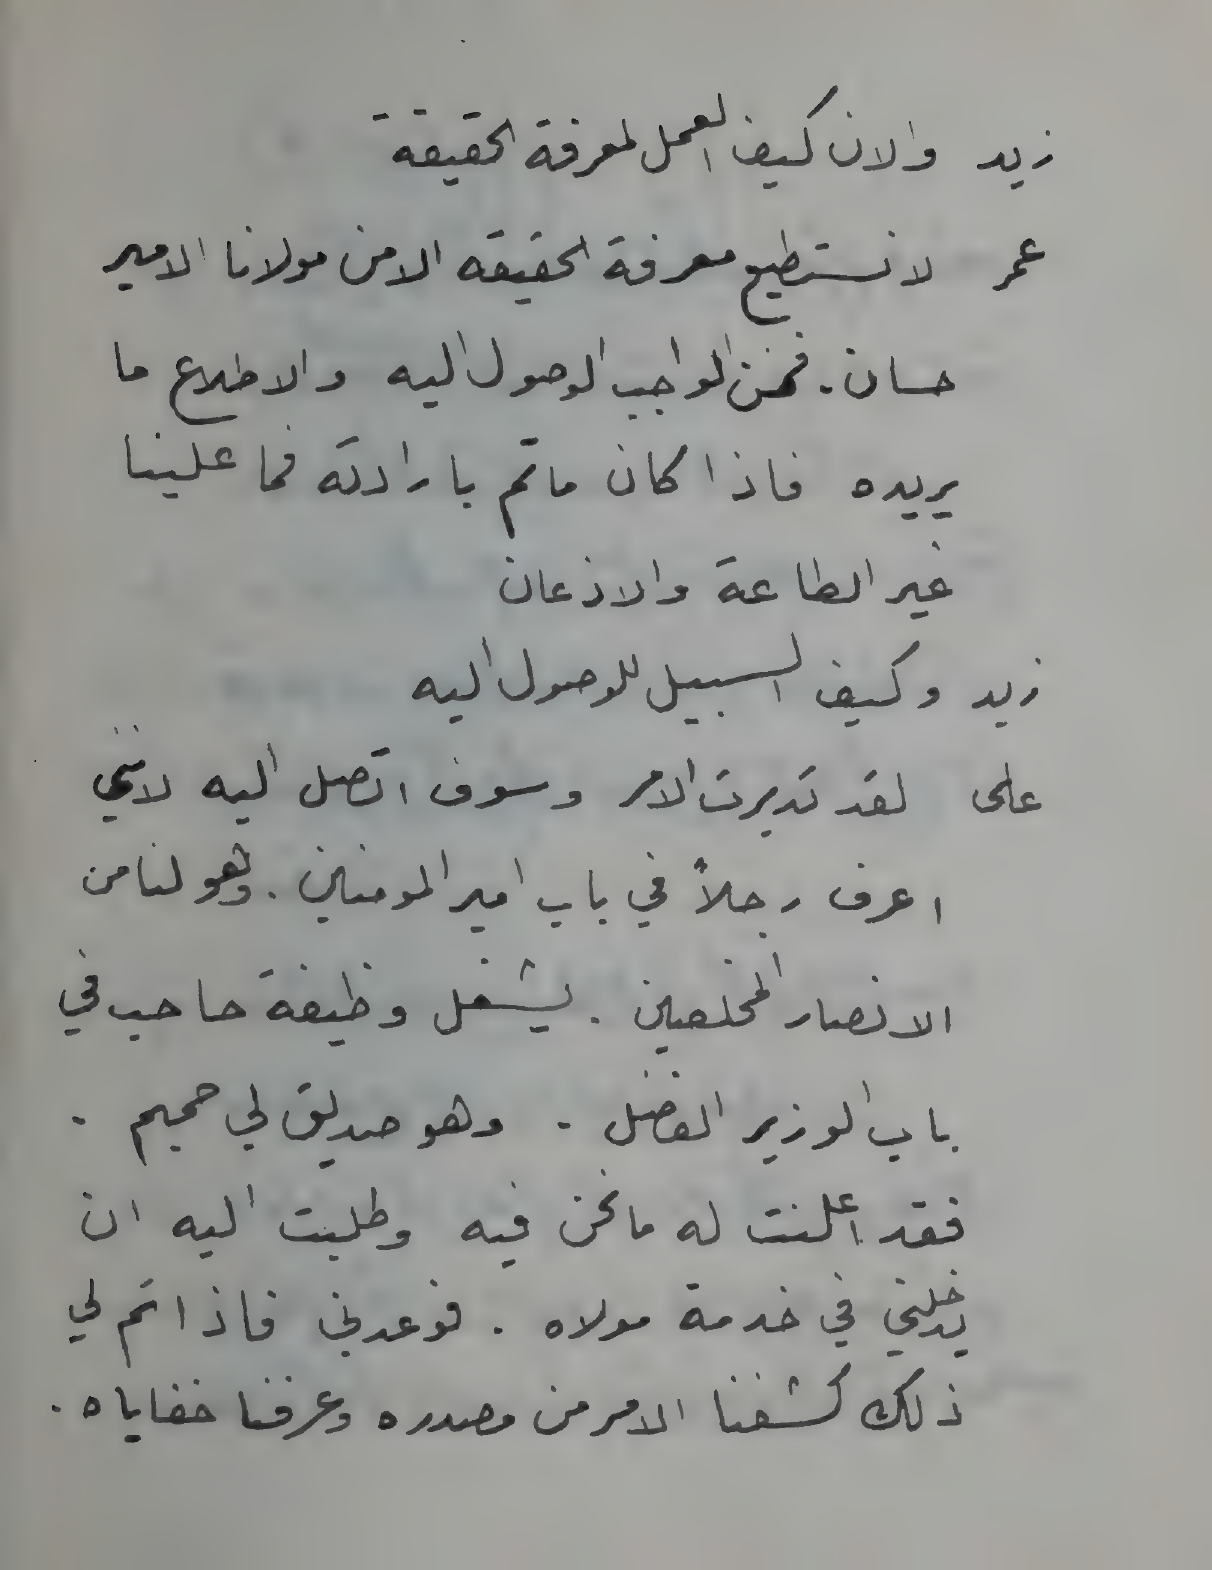 زيد والان كيف العمل لمعرفة الحقيقة
عمر لا نستطيع معرفة الحقيقه الا من مولانا الامير
حسان. فمن الواجب الوصول اليه والاطلاع ما
يريده فاذا كان ماتم بارادته فما علينا
غير الطاعة والاذعان
زيد وكيف السبيل للوصول اليه
على لقد تدبرت الامر وسوف اتصل اليه لانني
اعرف رجلاً في باب امير المومنين. وهو لنا من
الانصار المخلصين. يشغل وظيفة حاجب في
باب الوزير الفضل. وهو صديق لي حميم.
فقد اعلنت له مانحن فيه وطلبت اليه ان
يدخلني في خدمة مولاه. فوعدني فاذا تم لي
ذلك كشفنا الامر من مصدره وعرفنا خفاياه.